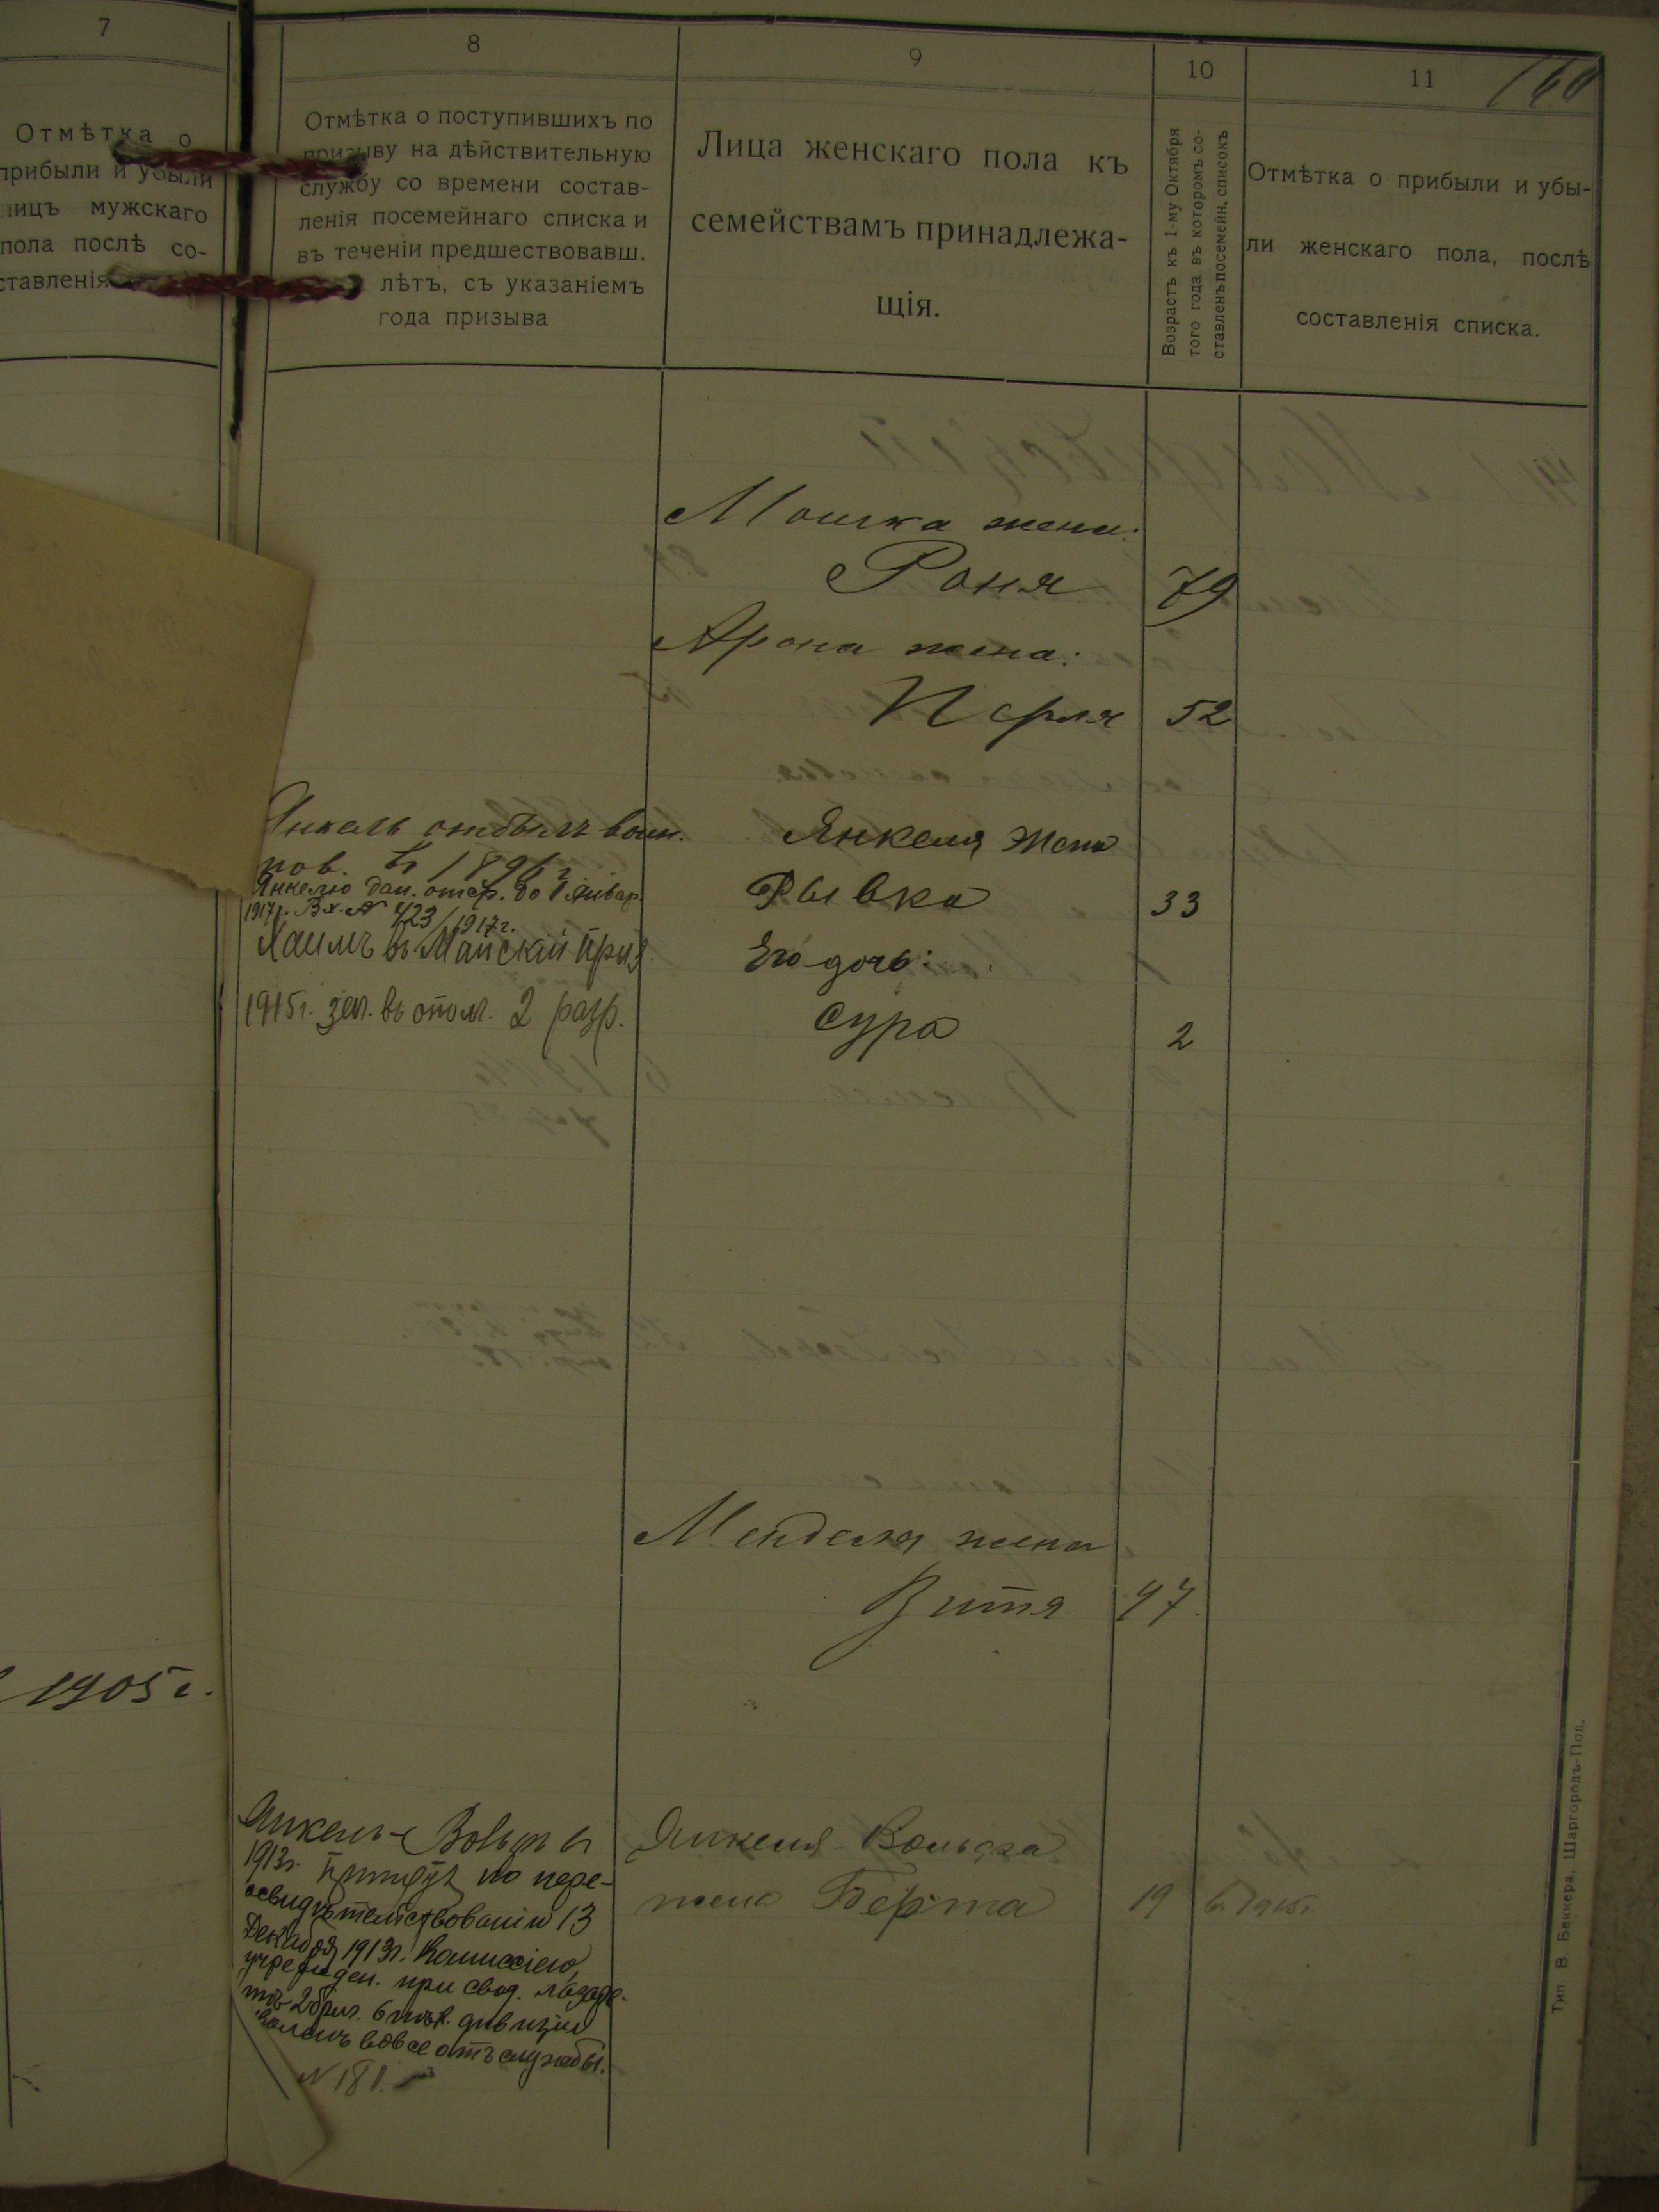 7
Отмѣтка о
прибыли и убыли
лицъ мужскаго
пола послѣ со-
ставленія
1905 г.
8
Отмѣтка о поступившихъ по
призыву на дѣйствительную
службу со времени состав-
ленія посемейнаго списка и
въ теченіи предшествовавш.
лѣтъ, съ указаніемъ
года призыва
9
Лица женскаго пола къ
семействамъ принадлежа-
щія.
10
Возрастъ къ 1-му Октября
того года въ которомъ со-
ставленъ посемейн. списокъ
11
160
Отмѣтка о прибыли и убы-
ли женскаго пола, послѣ
составленія списка.
Мошка жена:
Роня 79
Арона жена:
Перля 52
Янкель отбылъ воин.
пов. въ 1896 г
Янкелю дан. отср. до 1 Январ.
1917г. Вх. № 423/1917г.
Хаимъ въ Майскій приз.
1915г. зач. въ опол. 2 разр.
Янкеля жена
Рывка 33
Его дочь:
Сура 2
Менделя жена
Витя 47.
Янкель-Вольф въ
1913г. принятъ по пере-
освидѣтельствованіи 13
Декабря 1913г. Комиссіею,
учрежден. при свод. лазаре-
тѣ 2 бриг. 6 пѣх. дивизіи
вовсе отъ службы.
№ 181.
Янкеля-Вольфа
жена Берта 19
Тип В. Беккера, Шаргородъ-Под.